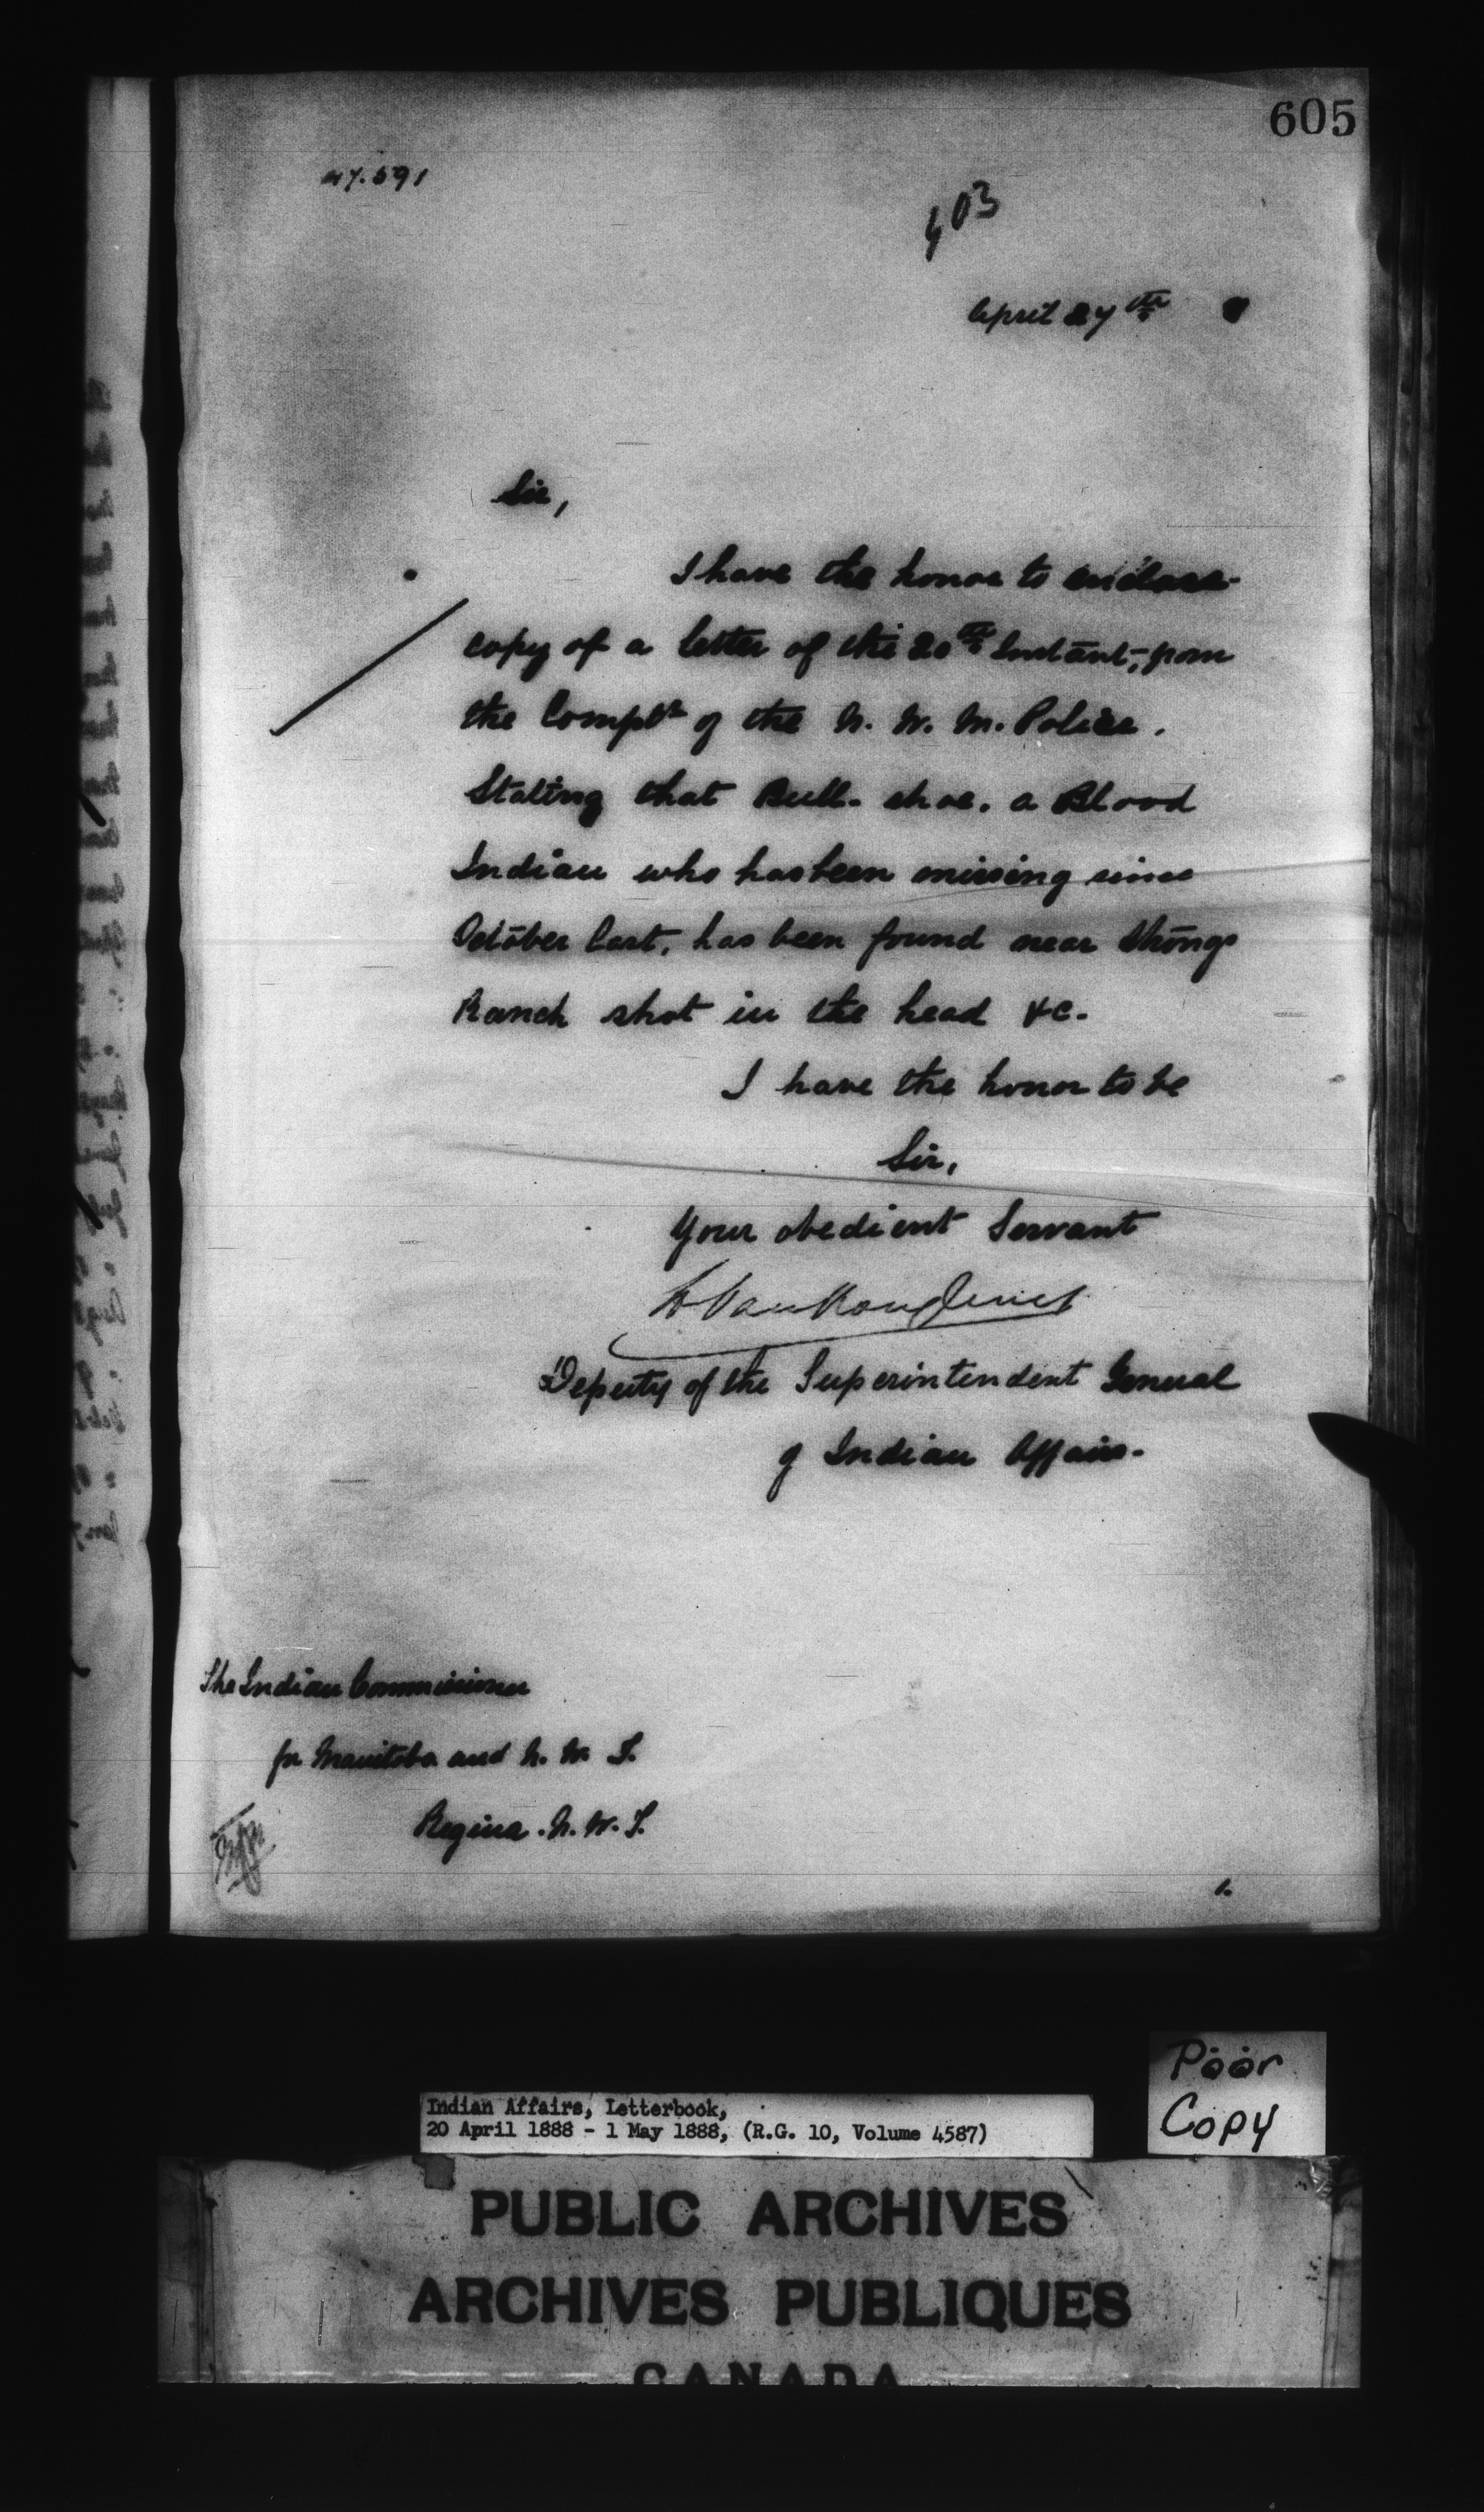 605
47.591
403
April 27th
Sir,
I have the honor to enclose
copy of a letter of the 20th Instant, from
the Complr of the N. W. M. Police.
Stating that Bull-shoe. a Blood
Indian who has been missing since
October last, has been found near Strongs
Ranch shot in the head &c.
I have the honor to be
Sir,
Your obedient Servant
L Vankoughnet
Deputy of the Superintendent General
of Indian Affairs.
The Indian Commissioner
for Manitoba and N. W. T.
Regina. N. W. T.
Poor
Copy
Indian Affairs, Letterbook,
20 April 1888 - 1 May 1888, (R.G. 10, Volume 4587)
PUBLIC ARCHIVES
ARCHIVES PUBLIQUES
CANADA